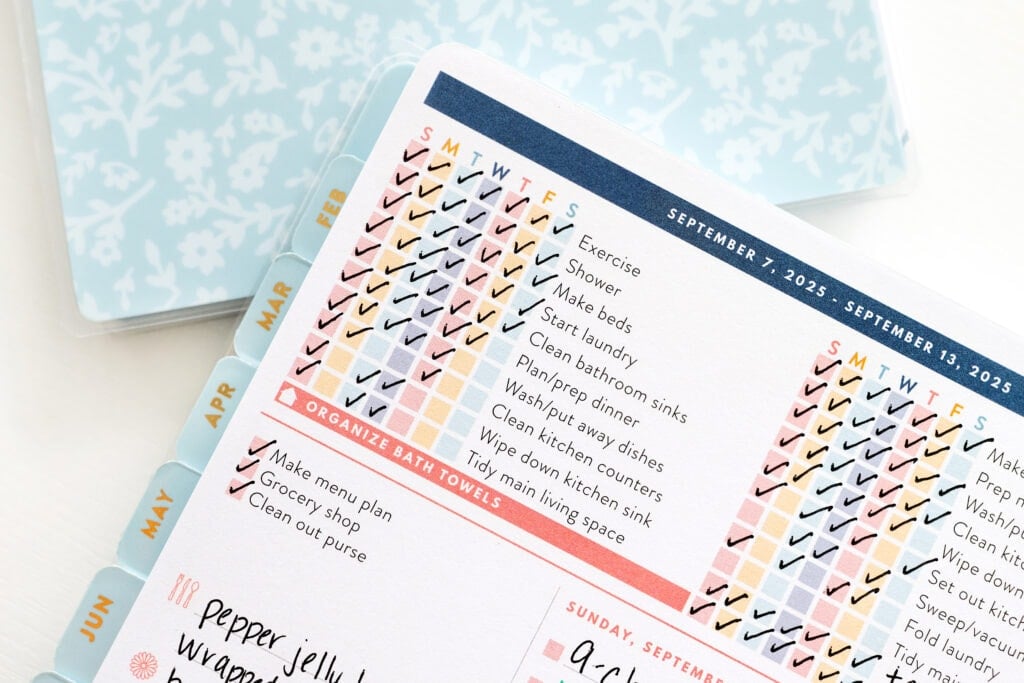 FEB
MAR
APR
MAY
JUN
SEPTEMBER 7, 2025 - SEPTEMBER 13, 2025
S M T W T F S
Exercise
Shower
Make beds
Start laundry
Clean bathroom sinks
Plan/prep dinner
Wash/put away dishes
Clean kitchen counters
Wipe down kitchen sink
Tidy main living space
ORGANIZE BATH TOWELS
Make menu plan
Grocery shop
Clean out purse
pepper jelly
wrapped
S M T W T F S
Make
Prep
Wash/pu
Clean kitc
Wipe down
Set out kitch
Sweep/vacuu
Fold laundry
Tidy mai
SUNDAY, SEPTEMBE